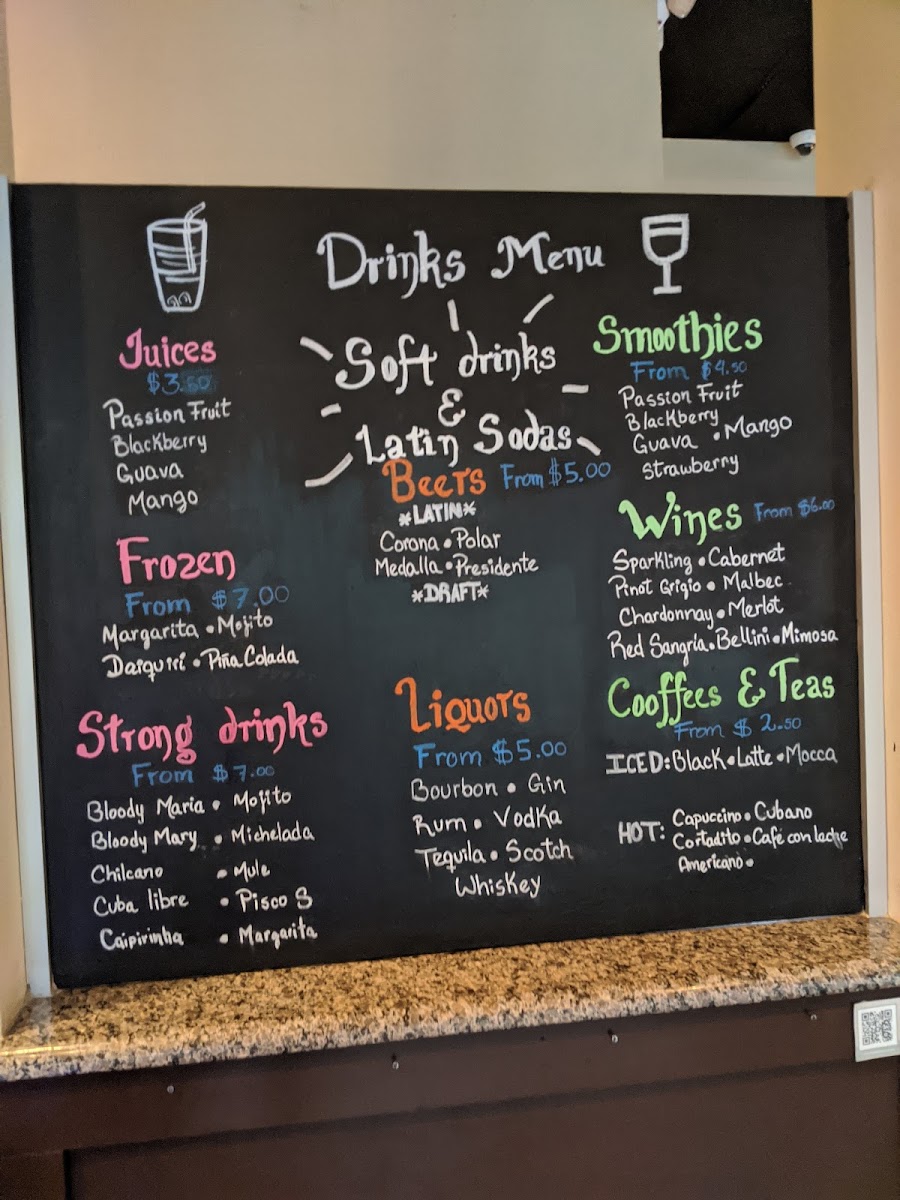 Drinks Menu
Juices
$3.50
Passion Fruit
Blackberry
Guava
Mango
Frozen
From $7.00
Margarita • Mojito
Daiquirí • Piña Colada
Strong drinks
From $7.00
Bloody Maria • Mojito
Bloody Mary • Michelada
Chilcano • Mule
Cuba libre • Pisco S
Caipirinha • Margarita
Soft drinks
&
Latin Sodas
Beers From $5.00
*LATIN*
Corona • Polar
Medalla • Presidente
*DRAFT*
Liquors
From $5.00
Bourbon • Gin
Rum • Vodka
Tequila • Scotch
Whiskey
Smoothies
From $4.50
Passion Fruit
Blackberry
Guava • Mango
Strawberry
Wines From $6.00
Sparkling • Cabernet
Pinot Grigio • Malbec
Chardonnay • Merlot
Red Sangría • Bellini • Mimosa
Cooffees & Teas
From $2.50
ICED: Black • Latte • Mocca
HOT: Capuccino • Cubano
Cortadito • Café con leche
Americano •